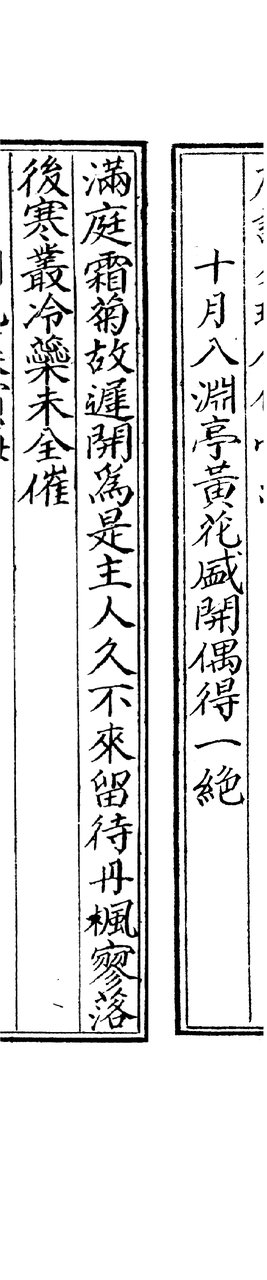 十月入淵亭黃花盛開偶得一絶
滿庭霜菊故遲開為是主人久不來留待丹楓寥落
後寒叢冷蘂未全催